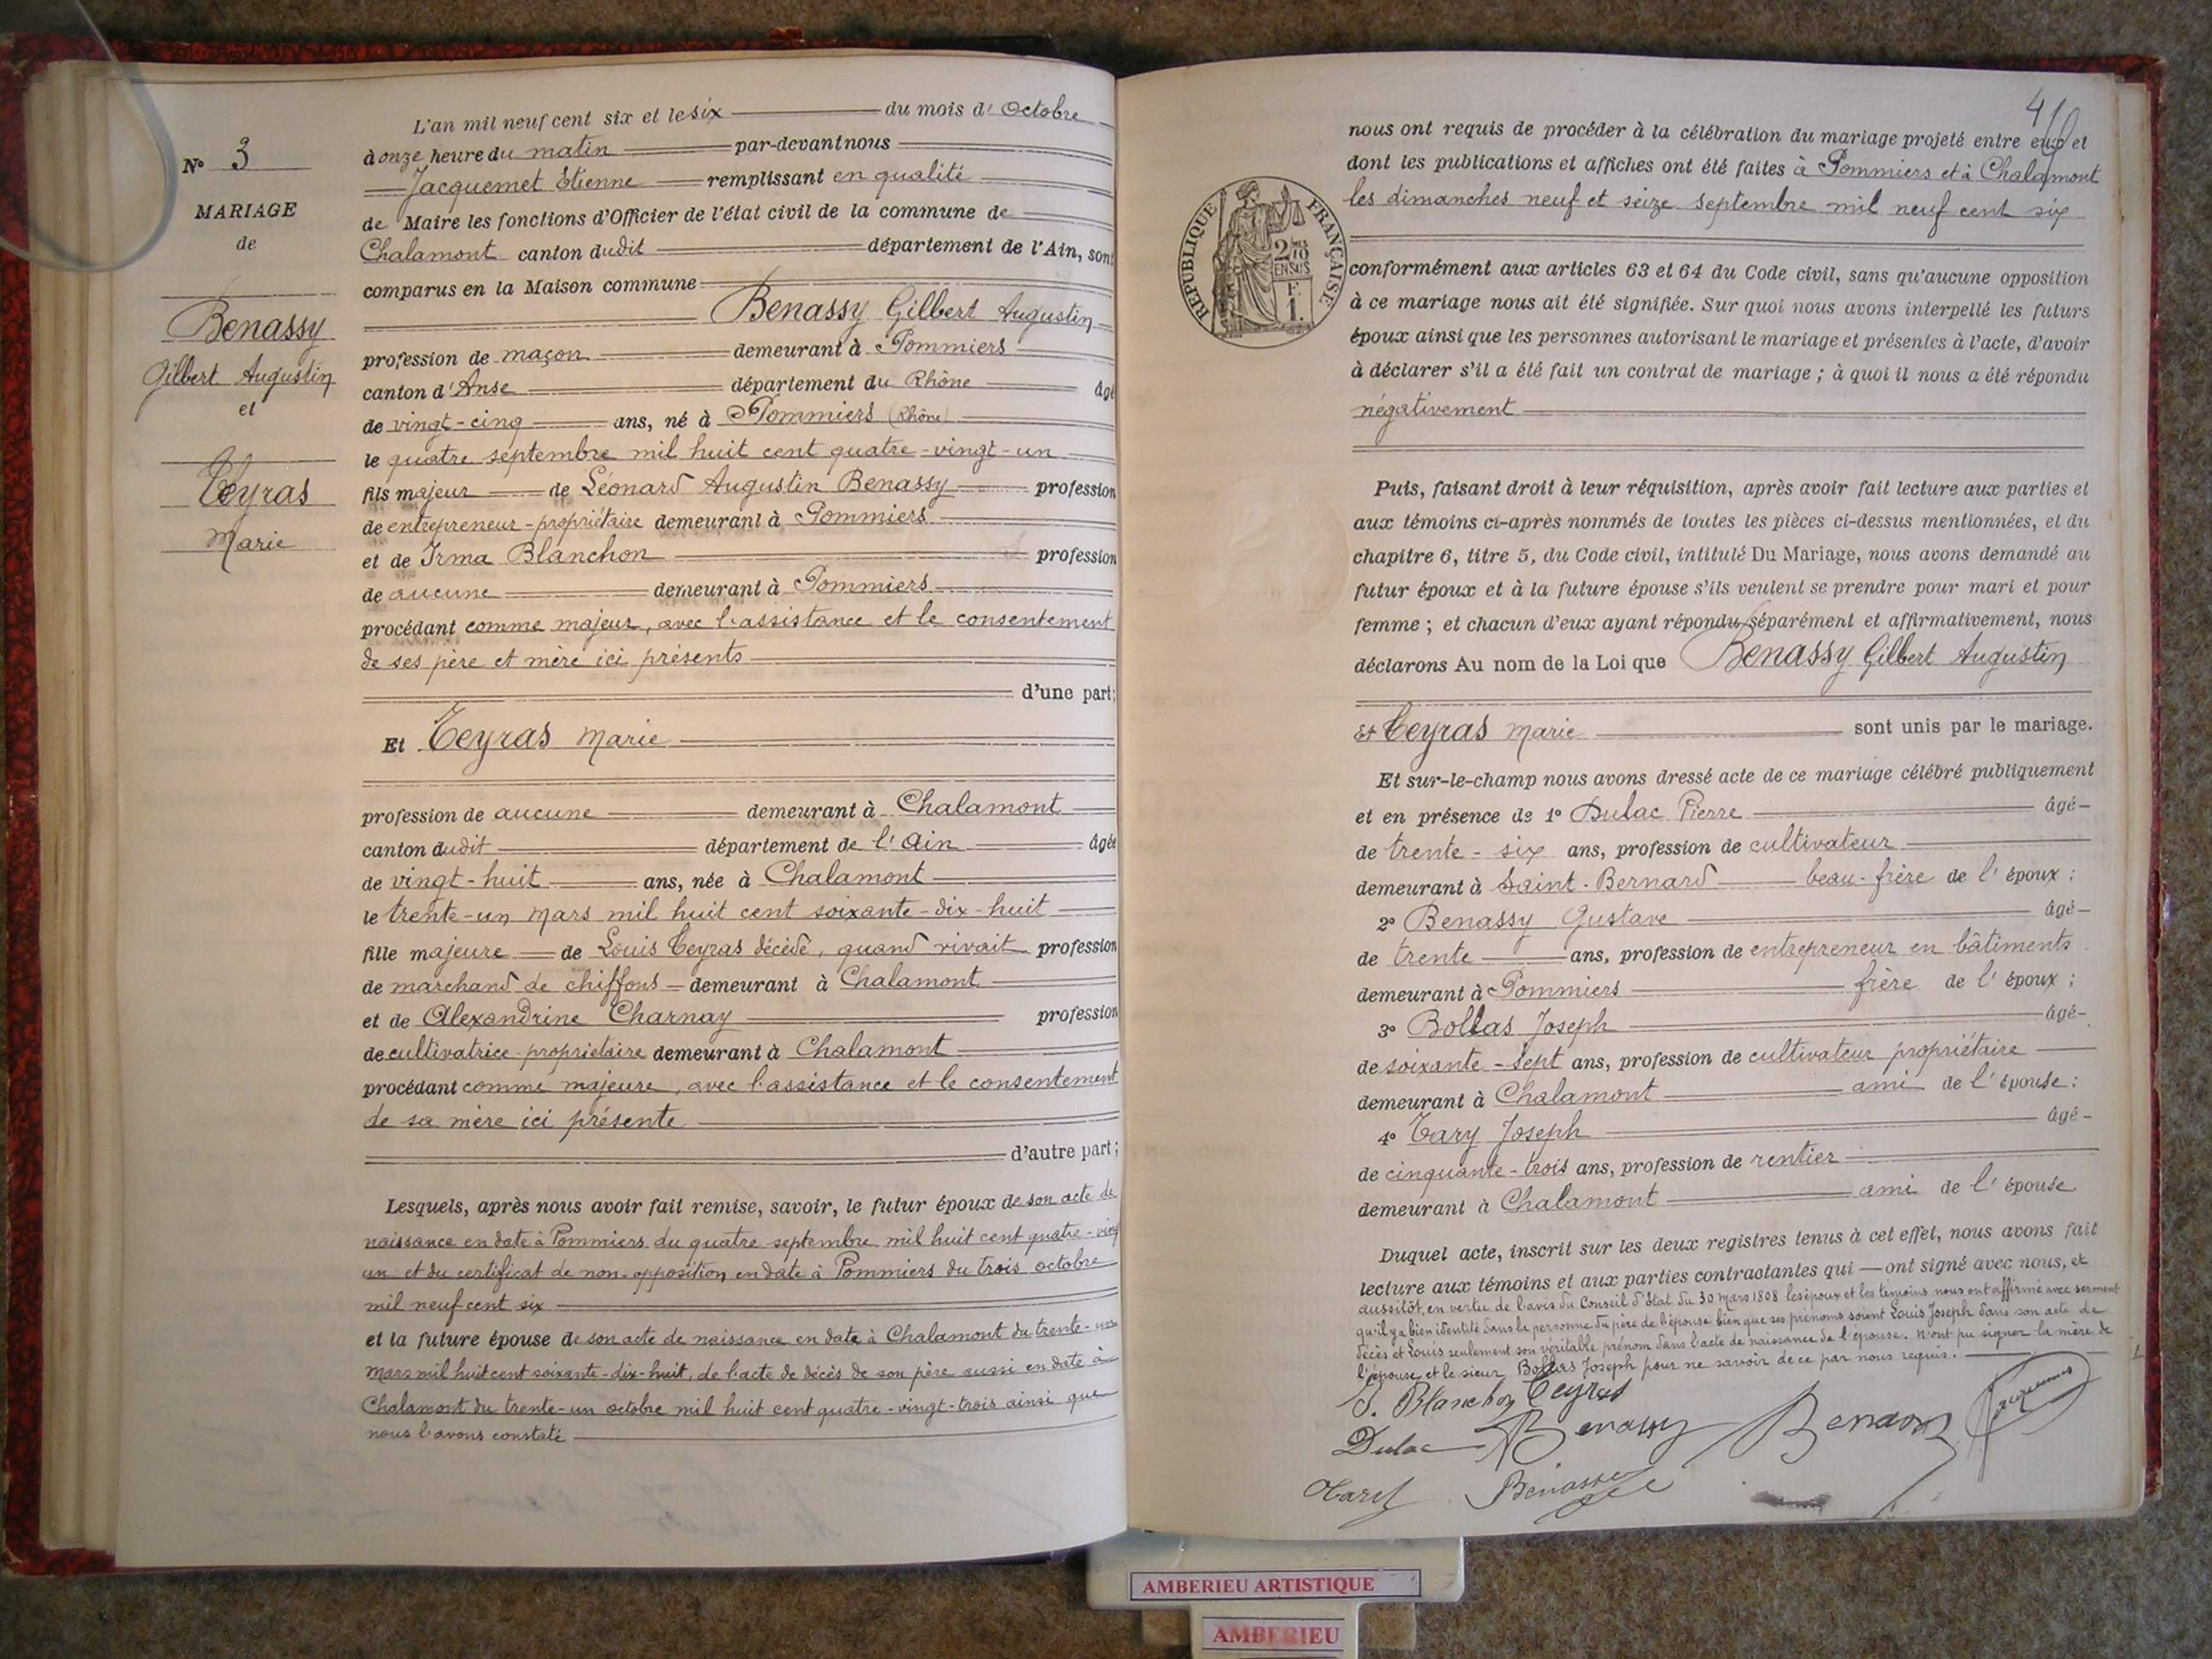 N° 3
MARIAGE
de
Benassy
Gilbert Augustin
et
Teyras
Marie
L'an mil neuf cent six et le six du mois d'Octobre
à onze heure du matin par-devant nous
Jacquemet Etienne remplissant en qualité
de Maire les fonctions d'Officier de l'état civil de la commune de
Chalamont canton dudit département de l'Ain, sont
comparus en la Maison commune
Benassy Gilbert Augustin
profession de maçon demeurant à Pommiers
canton d'Anse département du Rhône âgé
de vingt-cinq ans, né à Pommiers (Rhône)
le quatre septembre mil huit cent quatre-vingt-un
fils majeur de Léonard Augustin Benassy profession
de entrepreneur-propriétaire demeurant à Pommiers
et de Irma Blanchon profession
de aucune demeurant à Pommiers
procédant comme majeur, avec l'assistance et le consentement
de ses père et mère ici présents
d'une part;
Et Teyras Marie
profession de aucune demeurant à Chalamont
canton dudit département de l'Ain âgée
de vingt-huit ans, née à Chalamont
le trente-un Mars mil huit cent soixante-dix-huit
fille majeure de Louis Teyras décédé, quand vivait profession
de marchand de chiffons demeurant à Chalamont
et de Alexandrine Charnay profession
de cultivatrice-propriétaire demeurant à Chalamont
procédant comme majeure, avec l'assistance et le consentement
de sa mère ici présente
d'autre part;
Lesquels, après nous avoir fait remise, savoir, le futur époux de son acte de
naissance en date à Pommiers du quatre septembre mil huit cent quatre-vingt
un et du certificat de non-opposition en date à Pommiers du trois octobre
mil neuf cent six
et la future épouse de son acte de naissance en date à Chalamont du trente-un
Mars mil huit cent soixante-dix-huit, de l'acte de décès de son père aussi en date à
Chalamont du trente-un octobre mil huit cent quatre-vingt-trois ainsi que
nous l'avons constaté
REPUBLIQUE FRANÇAISE
nous ont requis de procéder à la célébration du mariage projeté entre eux et
dont les publications et affiches ont été faites à Pommiers et à Chalamont
les dimanches neuf et seize septembre mil neuf cent six
conformément aux articles 63 et 64 du Code civil, sans qu'aucune opposition
à ce mariage nous ait été signifiée. Sur quoi nous avons interpellé les futurs
époux ainsi que les personnes autorisant le mariage et présentes à l'acte, d'avoir
à déclarer s'il a été fait un contrat de mariage ; à quoi il nous a été répondu
négativement
Puis, faisant droit à leur réquisition, après avoir fait lecture aux parties et
aux témoins ci-après nommés de toutes les pièces ci-dessus mentionnées, et du
chapitre 6, titre 5, du Code civil, intitulé Du Mariage, nous avons demandé au
futur époux et à la future épouse s'ils veulent se prendre pour mari et pour
femme ; et chacun d'eux ayant répondu séparément et affirmativement, nous
déclarons Au nom de la Loi que Benassy Gilbert Augustin
et Teyras Marie sont unis par le mariage.
Et sur-le-champ nous avons dressé acte de ce mariage célébré publiquement
et en présence de 1° Dulac Pierre âgé
de trente-six ans, profession de cultivateur
demeurant à Saint-Bernard beau-frère de l'époux ;
2° Benassy Gustave âgé
de trente ans, profession de entrepreneur en bâtiments
demeurant à Pommiers frère de l'époux ;
3° Bollas Joseph âgé
de soixante-sept ans, profession de cultivateur propriétaire
demeurant à Chalamont ami de l'épouse ;
4° Tary Joseph âgé
de cinquante-trois ans, profession de rentier
demeurant à Chalamont ami de l'épouse
Duquel acte, inscrit sur les deux registres tenus à cet effet, nous avons fait
lecture aux témoins et aux parties contractantes qui ont signé avec nous, et
aussitôt, en vertu de l'avis du Conseil d'Etat du 30 Mars 1808 les époux et les témoins nous ont affirmé avec serment
qu'il y a bien identité dans la personne du père de l'épouse bien que ses prénoms soient Louis Joseph dans son acte de
décès et Louis seulement son véritable prénom dans l'acte de naissance de l'épouse. N'ont pu signer la mère de
l'épouse et le sieur Bollas Joseph pour ne savoir de ce par nous requis.
I. Blanchon Teyras
Dulac Benassy Benassy
Benassy
AMBERIEU ARTISTIQUE
AMBERIEU